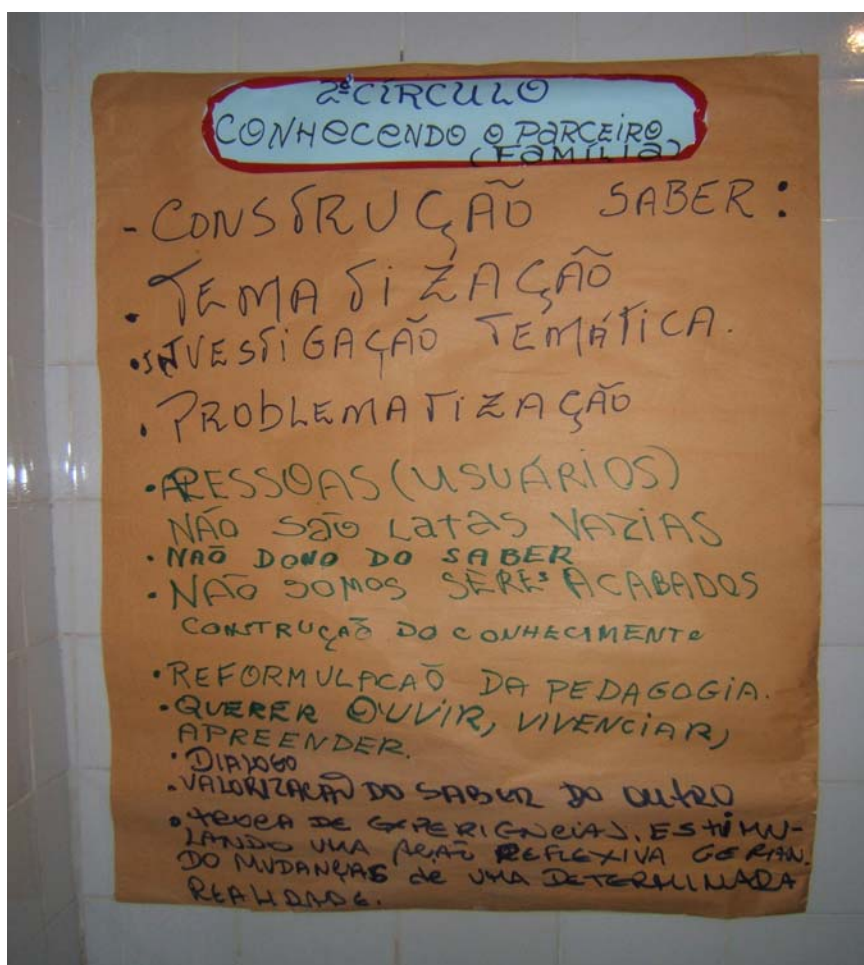 2º CÍRCULO
CONHECENDO O PARCEIRO
(FAMÍLIA)
- CONSTRUÇÃO SABER:
. TEMATIZAÇÃO
. INVESTIGAÇÃO TEMÁTICA.
. PROBLEMATIZAÇÃO
. PESSOAS (USUÁRIOS)
NÃO SÃO LATAS VAZIAS
. NÃO DONO DO SABER
. NÃO SOMOS SERES ACABADOS
CONSTRUÇÃO DO CONHECIMENTO
. REFORMULACAÕ DA PEDAGOGIA.
. QUERER OUVIR, VIVENCIAR,
APREENDER.
. DIALOGO
. VALORIZAÇÃO DO SABER DO OUTRO
. TROCA DE EXPERIÊNCIAS, ESTIMU-
LANDO UMA AÇÃO REFLEXIVA GERAN-
DO MUDANÇAS de UMA DETERMINADA
REALIDADE.